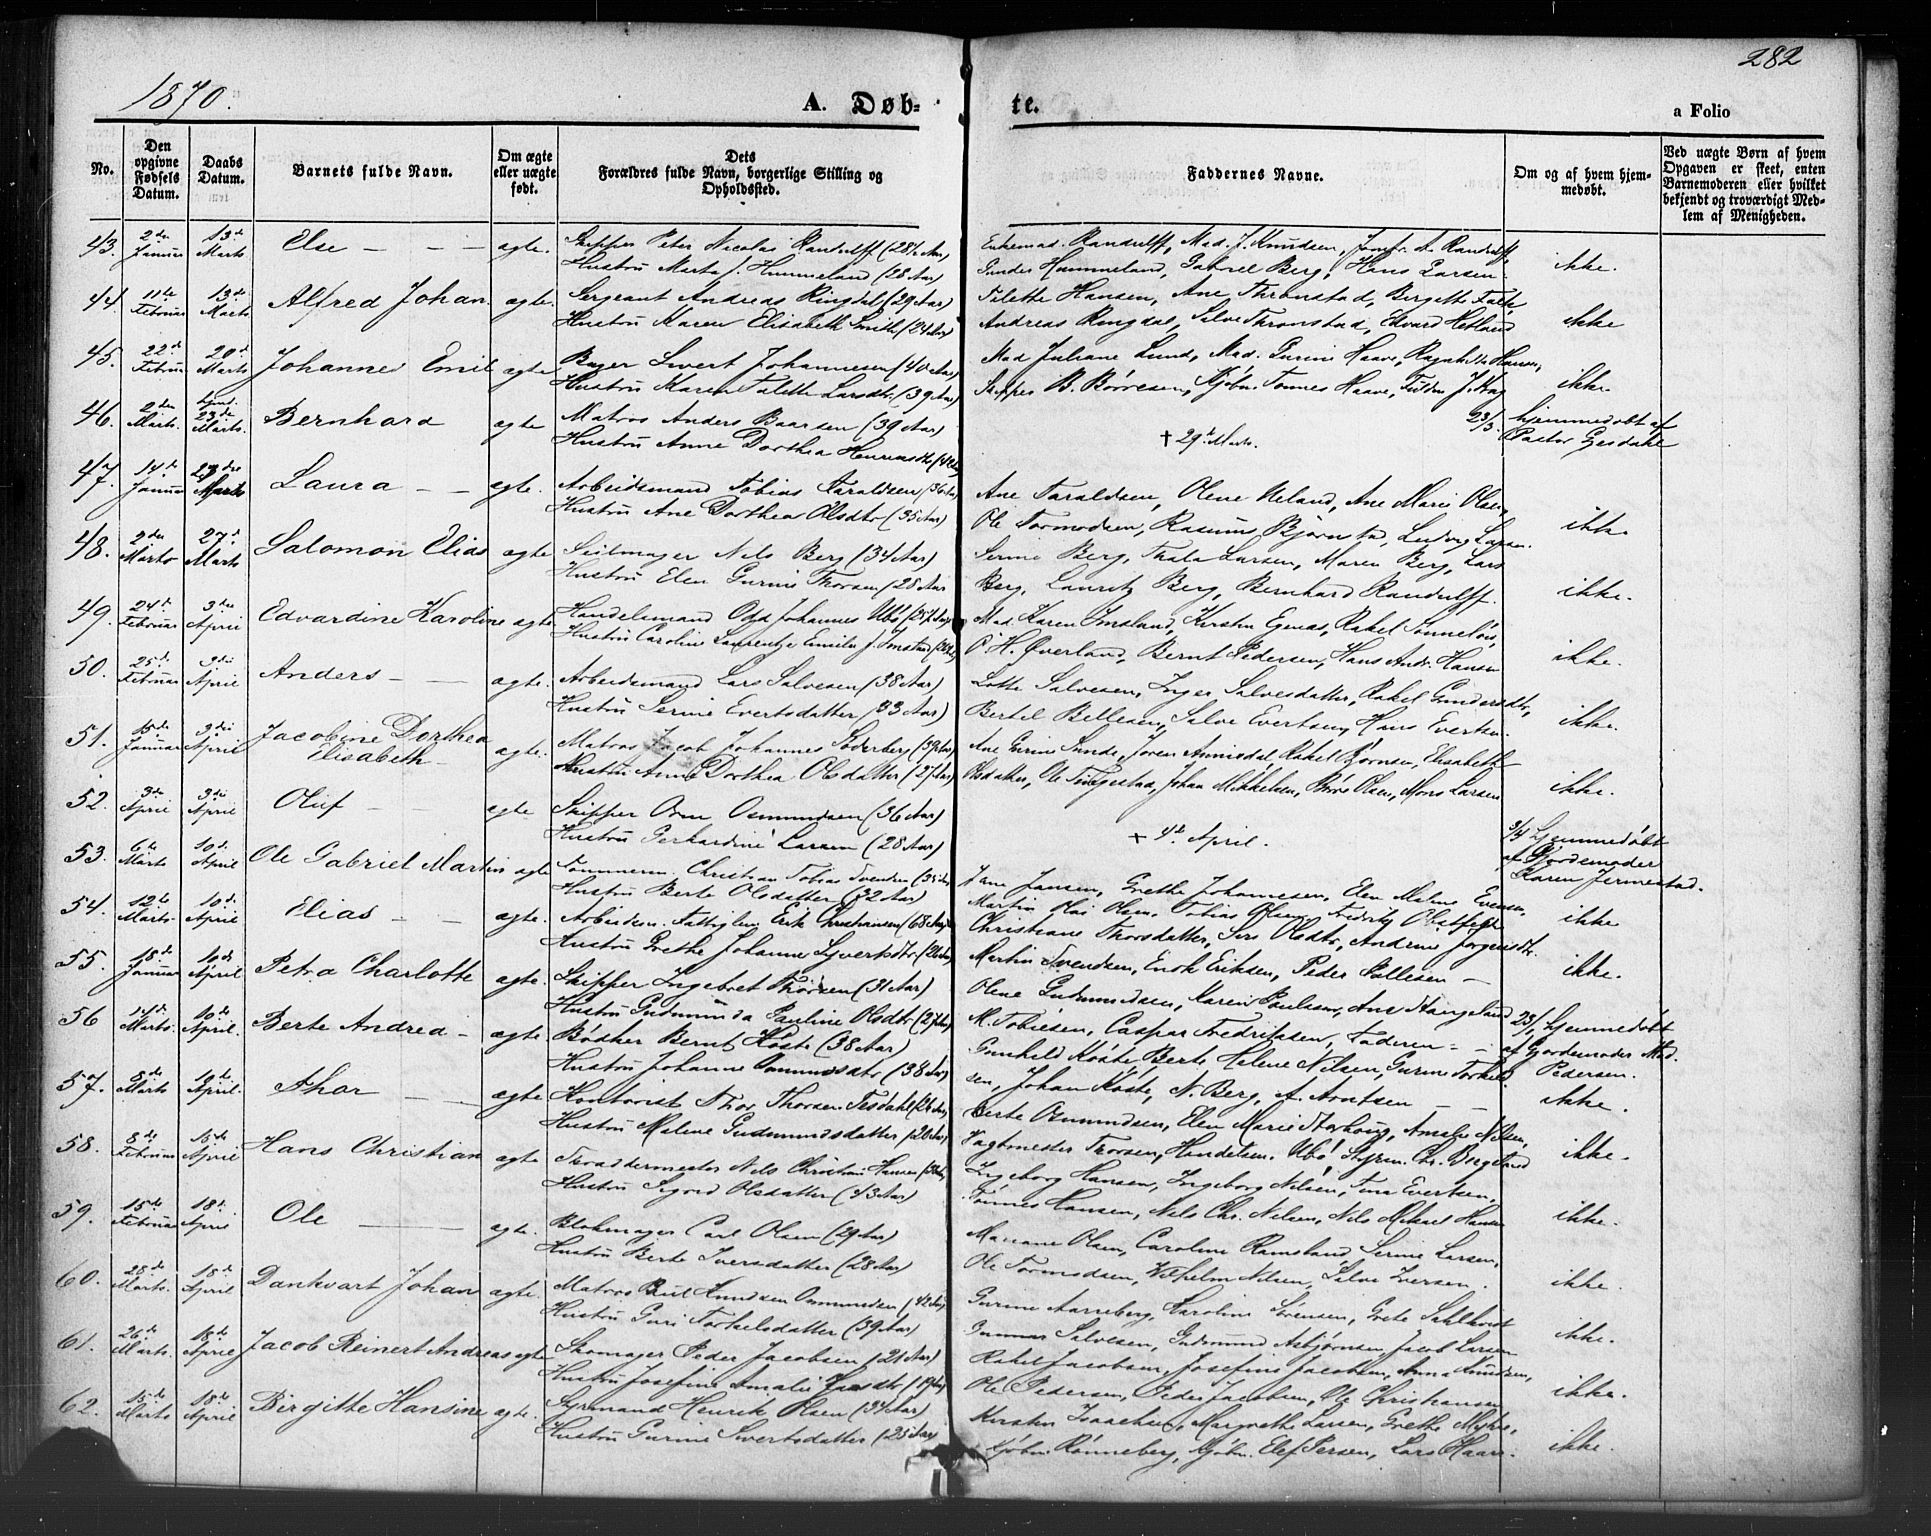 1870.
A. Døb-
te.
282
a Folio
No.
Den opgivne Fødsels Datum.
Daabs Datum.
Barnets fulde Navn.
Om ægte eller uægte født.
Dets Forældres fulde Navn, borgerlige Stilling og Opholdssted.
Faddernes Navne.
Om og af hvem hjemmedøbt.
Ved uægte Børn af hvem Opgaven er skeet, enten Barnemoderen eller hvilket bekjendt og troværdigt Medlem af Menigheden.
43. 2den Januar 13de Marts Else — — — ægte. Skipper Peter Nicolai Randulff (28½ Aar)
Hustru Marta J. Hummeland (28 Aar)
Randulff, Mad. J. Knudsen, Jomfr. A. Randulff,
Gunder Hummeland, Gabriel Berg, Hans Larsen. ikke.
44. 11te Februar 13de Marts Alfred Johan ægte. Sergeant Andreas Ringdal (29 Aar)
Hustru Karen Elisabeth Smith (24 Aar)
Tilette Hansen, Ane Thronstad, Bergitte Falk,
Andreas Ringdal, Salve Thronstad, Edvard Hetland ikke
45. 22de Februar 20de Marts Johannes Emil ægte Bager Sivert Johannesen (40 Aar)
Hustru Karen Tilette Larsdtr. (39 Aar)
Mad Juliane Lund, Mad. Gurine Haave, Ragnhilde Hansen,
Skipper B. Børresen, Kjøbm. Tønnes Haave, J. Hag ikke.
46. 2den Marts. 23de Marts. Bernhard ægte Matros Anders Baarsen (39 Aar)
Hustru Anne Dorthea Henriksdtr (42 Aar)
† 29de Marts.
23/3. hjemmedøbt af
Pastor Gjesdahl
47. 14de Januar 27de Marts Laura — — ægte. Arbeidsmand Tobias Taraldsen (36 Aar)
Hustru Ane Dorthea Olsdtr (35 Aar)
Ane Taraldsen, Olene Ueland, Ane Marie Olsen,
Ole Tormodsen, Rasmus Bjørnstad, Ludvig Larsen. ikke.
48. 2den Marts 27de Marts Salomon Elias ægte Seilmager Nils Berg (34 Aar)
Hustru Elen Gurine Thorsen (28 Aar
Serine Berg, Thala Larsen, Maren Berg, Lars
Berg, Lauritz Berg, Bernhard Randulff. ikke.
49. 24de Februar 3die April Edvardine Karoline ægte Handelsmand Odd Johannes Ubø
Hustru Caroline Laurentze Emilie J. Imsland
Mad. Karen Imsland, Kirsten Egenæs, Rakel Tønnesen,
P. H. Øverland, Bernt Pedersen, Hans Andr. Hansen ikke.
50. 25de Februar 3die April Anders — — ægte. Arbeidsmand Lars Salvesen (38 Aar)
Hustru Serine Evertsdatter (33 Aar)
Lotte Salvesen, Inger Salvesdatter, Rakel Gundersdtr,
Bertel Bellesen, Salve Evertsen, Hans Evertsen. ikke.
51. 15de Januar 3die April Jacobine Dorthea
Elisabeth — ægte. Matros Jacob Johannes Søderberg (39 Aar)
Hustru Anne Dorthea Olsdatter (27 Aar)
Ane Gurine Sunde, Joren Annisdal, Rakel Bjørnsen, Elisabeth
Olsdatter, Ole Tingestad, Johan Mikkelsen, Børe Olsen, Mons Larsen ikke.
52. 3die April 3die April Oluf — ægte Skipper Orm Osmundsen (36 Aar)
Hustru Gerhardine Larsen (28 Aar)
† 4de April.
3/4 hjemmedøbt
af Gjordemoder
Karen Jermestad.
53. 6te Marts 10de April Ole Gabriel Martin ægte Tømmerm. Christian Tobias Svendsen (35 Aar)
Hustru Berte Olsdatter (32 Aar)
Jane Jansen, Grethe Johannesen, Elen Maline Evensen,
Martin Olai Olsen, Tobias Olsen, Fredrik Obstfelder ikke
54. 12te Marts 10de April Elias — — ægte. Arbeidsm. Fattiglem Erik Christiansen (68 Aar)
Hustru Grethe Johanne Syvertsdtr. (26 Aar)
Christiane Thorsdatter, Siri Olsdtr, Andrine Jørgensdtr.
Martin Svendsen, Enok Eriksen, Peder Pallesen — ikke.
55. 18de Januar 10de April Petra Charlotte ægte. Skipper Ingebret Thorsen (31 Aar)
Hustru Gudmunda Pauline Olsdtr (27 Aar)
Olene Gudmundsen, Karen Paulsen, Ane Stangeland
M. Tobiesen, Caspar Fredriksen, Faderen — —
23/1 hjemmedøbt
af Gjordemoder Mad.
Pedersen.
56 Marts. 10de April. Berte Andrea — ægte Bødker Bernt Køste (38 Aar)
Hustru Johanne Ommundsdtr (38 Aar)
Gunhild Køste, Berte Helene Nilsen, Gurine Torkel-
sen, Johan Køste, N. Berg, A. Arntsen — — ikke.
57. 8de Marts 10de April. Thor — — ægte Kontorist Thor Thorsen Tesdahl (24 Aar)
Hustru Malene Gudmundsdatter (20 Aar)
Berte Osmundsen, Elen Marie Aarhoug, Amalie Nilsen,
Vagtmester Thorsen, Handelsm. Ubø, Styrm. Chr. Bergeland ikke.
58. 8de Februar 15de April Hans Christian ægte Traadermester Nils Christian Hansen
Hustru Sigrid Olsdatter (43 Aar)
Ingeborg Hansen, Ingeborg Nilsen, Tine Evertsen,
Tønnes Hansen, Nils Chr. Nilsen, Nils Mikael Hansen ikke.
59. 15de Februar 18de April Ole — ægte. Blokmager Carl Olsen (29 Aar)
Hustru Berte Iversdatter (28 Aar)
Mariane Olsen, Caroline Ramsland, Serine Larsen,
Ole Tormodsen, Wilhelm Nilsen, Salve Iversen. ikke.
60. 28de Marts. 18de April Dankvart Johan ægte. Matros Knudsen Ommundsen (42 Aar)
Hustru Guri Torkelsdatter (39 Aar)
Gurine Aarreberg, Karoline Sørensen, Grete Sahlkvist
Gunnar Salvesen, Gudmund Asbjørnsen, Jacob Larsen ikke.
61. 26de Marts. 18de April Jacob Reinert Andreas ægte Skomager Peder Jacobsen (21 Aar)
Hustru Josefine Amalie (19 Aar)
Rakel Jacobsen, Josefine Jacobsen, Anna Knudsen,
Ole Pedersen, Peder Jacobsen, Ole Christiansen ikke.
62. 15de Marts 18de April Birgitte Hansine ægte. Styrmand Henrik Olsen (34 Aar)
Hustru Gurine Sivertsdatter (25 Aar)
Kirsten Isaachsen, Margrethe Larsen, Grethe Myhre,
Kjøbm. Rønneberg, Kjøbm. Elef Persen, Lars Haar. ikke.